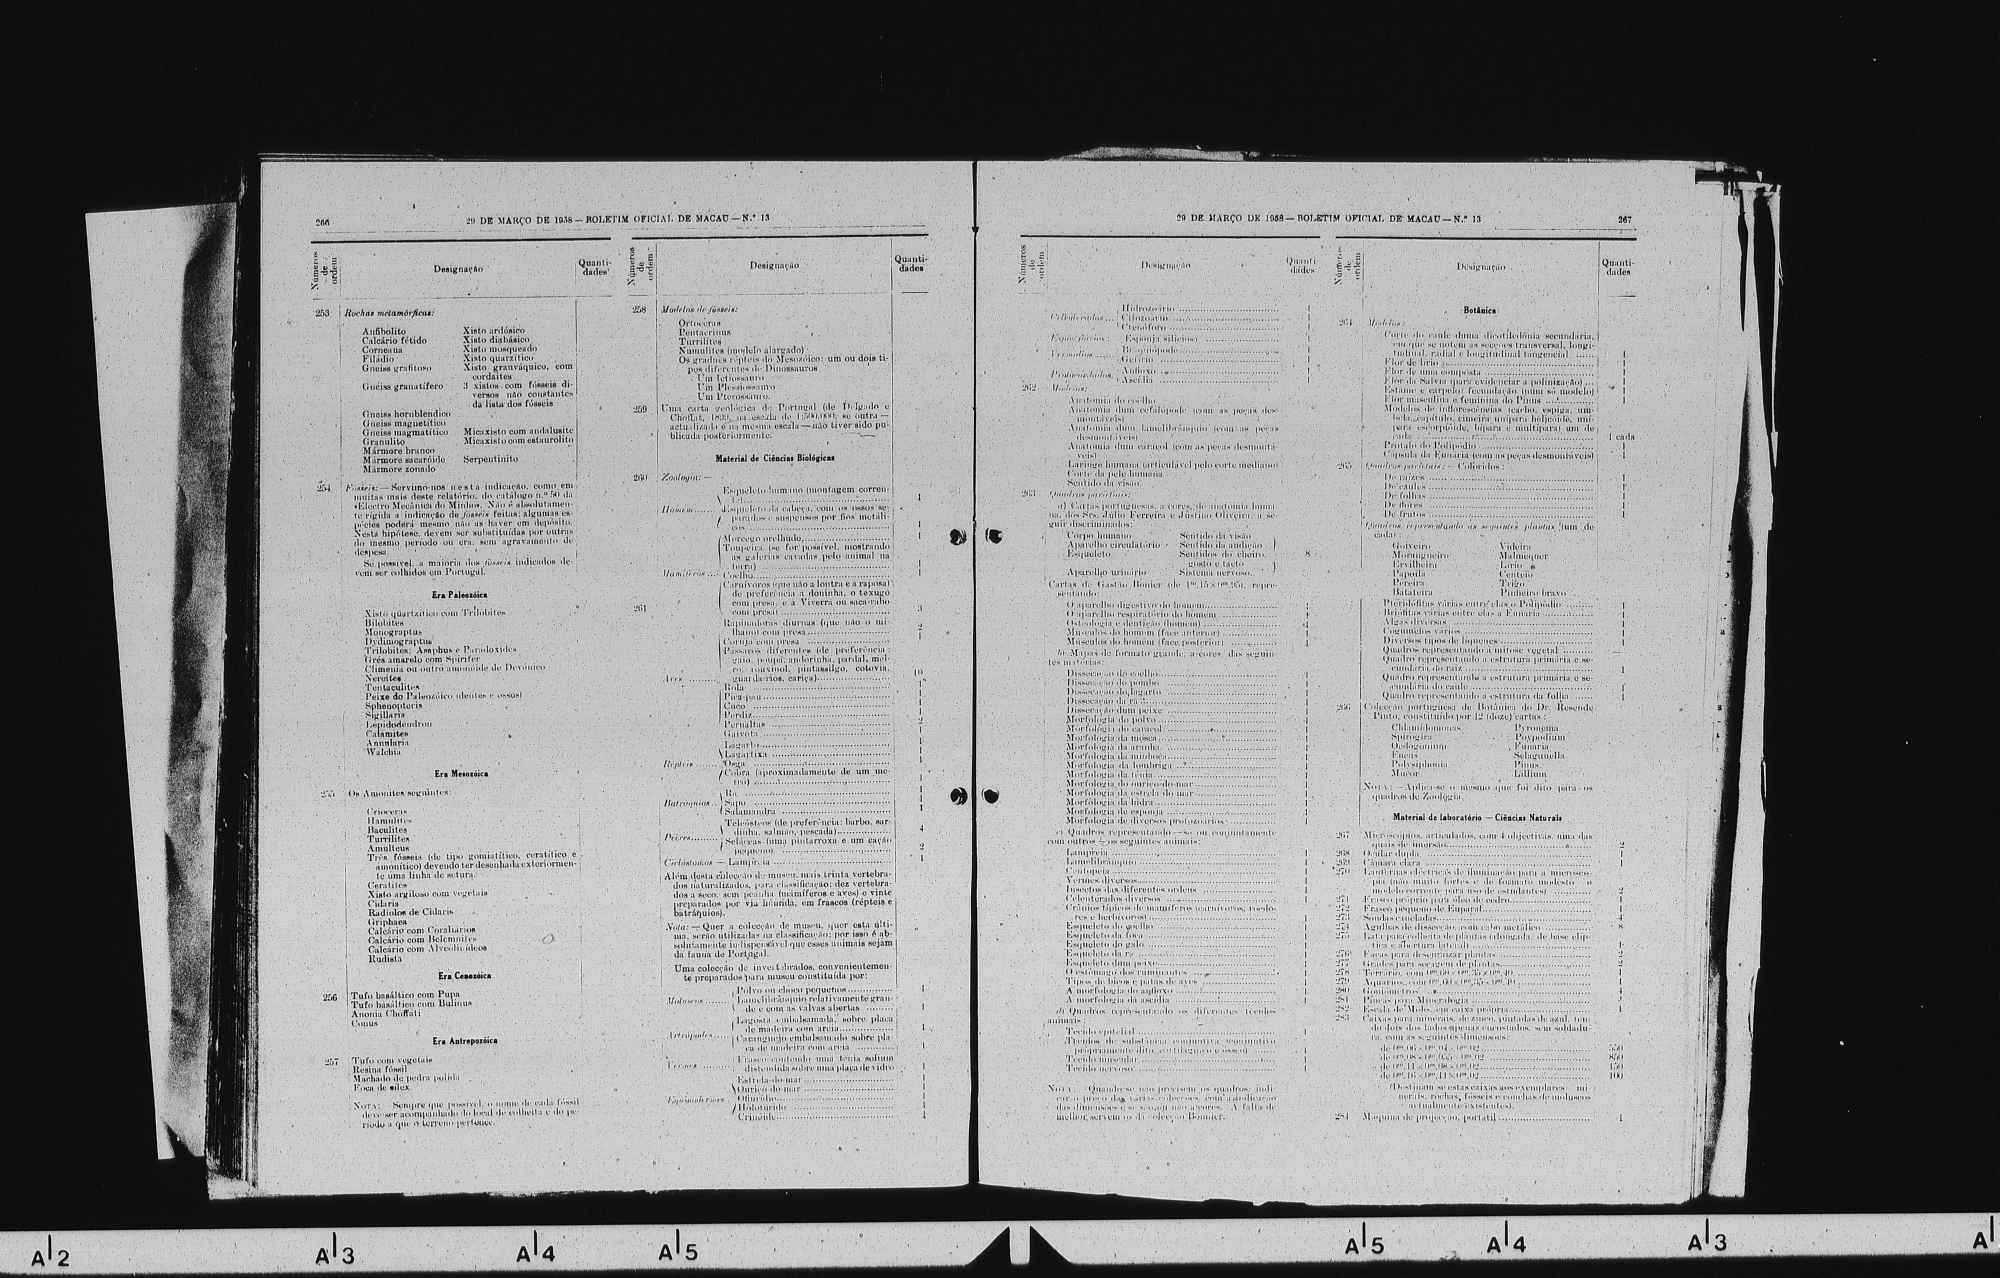 266
29 DE MARÇO DE 1958 — BOLETIM OFICIAL DE MACAU — N.º 13
Números de ordem
Designação
Quanti-
dades
253
Rochas metamórficas:
Anfibolito Xisto ardósico
Calcário fétido Xisto diabásico
Corneana Xisto mosqueado
Filádio Xisto quarzítico
Gneiss grafitoso Xisto granváquico, com
cordaites
Gneiss granatífero 3 xistos com fósseis di-
versos não constantes
da lista dos fósseis
Gneiss hornblendico
Gneiss magnetítico
Gneiss magmatítico Micaxisto com andalusite
Granulito Micaxisto com estaurolito
Mármore branco
Mármore sacaróide Serpentinito
Mármore zonado
254
Fósseis: — Servimo-nos nesta indicação, como em
muitas mais deste relatório, do catálogo n.º 50 da
«Electro Mecânica do Minho». Não é absolutamen-
te rígida a indicação de fósseis feitas; algumas es-
pécies poderá mesmo não as haver em depósito.
Nesta hipótese, devem ser substituídas por outras
do mesmo período ou era, sem agravamento de
despesa.
Se possível, a maioria dos fósseis indicados de-
vem ser colhidos em Portugal.
Era Paleozóica
Xisto quartzítico com Trilobites
Bilobites
Monograptus
Dydimograptus
Trilobites: Asaphus e Paradoxides
Grés amarelo com Spirifer
Climenia ou outro amonóide de Devónico
Nereites
Tentaculites
Peixe do Paleozóico (dentes e ossos)
Sphenopteris
Sigillaria
Lepidodendron
Calamites
Annularia
Walchia
Era Mesozóica
255
Os Amonites seguintes:
Crioceras
Hamulites
Baculites
Turrilites
Amulteus
Três fósseis (de tipo gomiatítico, ceratítico e
amonítico) devendo ter desenhada exteriormen-
te uma linha de sutura.
Ceratites
Xisto argiloso com vegetais
Cidaris
Radíolos de Cidaris
Griphaea
Calcário com Coraliários
Calcário com Belemnites
Calcário com Alveolinídeos
Rudista
Era Cenozóica
256
Tufo basáltico com Pupa
Tufo basáltico com Bulinus
Anomia Choffati
Conus
Era Antropozóica
257
Tufo com vegetais
Resina fóssil
Machado de pedra polida
Faca de silex
NOTA: Sempre que possível, o nome de cada fóssil
deve ser acompanhado do local de colheita e do pe-
ríodo a que o terreno pertence.
Números de ordem
Designação
Quanti-
dades
258
Modelos de fósseis:
Ortoceras
Pentacrinus
Turrilites
Numulites (modelo alargado)
Os grandes répteis do Mesozóico: um ou dois ti-
pos diferentes de Dinossauros
Um Ictiossauro
Um Plessiossauro
Um Pterossauro.
259
Uma carta geológica de Portugal (de Delgado e
Choffat, 1899, na escala de 1/500.000; se outra —
actualizada e na mesma escala — não tiver sido pu-
blicada posteriormente.
Material de Ciências Biológicas
260
Zoologia: —
Esqueleto humano (montagem corren-
te) 1
Homem
Esqueleto da cabeça, com os ossos se-
parados e suspensos por fios metáli-
cos 1
Morcego orelhudo 1
Toupeira (se for possível, mostrando
as galerias cavadas pelo animal na
terra) 1
Mamíferos
Coelho 1
Carnívoros (que não a lontra e a raposa)
de preferência a doninha, o texugo
com presa, e a Viverra ou saca-rabo
com presa) 3
261
Rapinadoras diurnas (que não o mi-
lhano) com presa 2
Coruja com presa 1
Pássaros diferentes (de preferência:
gaio, poupa, andorinha, pardal, mel-
ro, rouxinol, pintassilgo, cotovia,
guarda-rios, cariça) 10
Aves
Rola
Pica-pau
Cuco
Perdiz
Pernaltas
Gaivota
Lagarto
Lagartixa
Répteis
Osga
Cobra (aproximadamente de um me-
tro)
Batráquios
Rã
Sapo
Salamandra
Peixes
Teleósteos (de preferência: barbo, sar-
dinha, salmão, pescada) 4
Seláceas (uma pintarroxa e um cação
pequeno) 2
Ciclóstomos — Lampreia 1
Além desta colecção de museu, mais trinta vertebra-
dos naturalizados, para classificação: dez vertebra-
dos a seco, sem peanha (mamíferos e aves) e vinte
preparados por via húmida, em frascos (répteis e
batráquios).
Nota: — Quer a colecção de museu, quer esta últi-
ma, serão utilizadas na classificação; por isso é ab-
solutamente indispensável que esses animais sejam
da fauna de Portugal.
Uma colecção de invertebrados, convenientemen-
te preparados para museu constituída por:
Moluscos
Polvo ou choco pequenos 1
Lamelibrânquio relativamente gran-
de e com as valvas abertas 1
Artrópodes
Lagosta embalsamada, sobre placa
de madeira com areia 1
Caranguejo embalsamado sobre pla-
ca de madeira com areia 1
Vermes
Frasco contendo uma ténia solium
distendida sobre uma placa de vidro 1
Equinodermes
Estrela-do-mar 1
Ouriço-do-mar 1
Ofiurídio 1
Holotúrido 1
Crinóide 1
29 DE MARÇO DE 1958 — BOLETIM OFICIAL DE MACAU — N.º 13
267
Números de ordem
Designação
Quanti-
dades
Celenterados
Hidrozoário 1
Cifozoário 1
Ctenóforo 1
Espongiários Esponja siliciosa 1
Vermidios
Braquiópode 1
Protocordados
Anfioxo 1
Ascídia 1
262
Modelos:
Anatomia do coelho
Anatomia dum cefalópode (com as peças des-
montáveis)
Anatomia dum lamelibrânquio (com as peças
desmontáveis)
Anatomia dum caracol (com as peças desmontá-
veis)
Laringe humana (articulável pelo corte mediano)
Corte da pele humana
Sentido da visão
263
Quadros parietais:
a) Cartas portuguesas, a cores, de anatomia huma-
na, dos Srs. Júlio Ferreira e Justino Oliveira, a se-
guir discriminados:
Corpo humano Sentido da visão
Aparelho circulatório Sentido da audição
Esqueleto Sentidos do cheiro, 8
gosto e tacto
Aparelho urinário Sistema nervoso.
Cartas de Gastão Bonier (de 1m,15 × 0m,95), repre-
sentando:
O aparelho digestivo do homem 1
O aparelho respiratório do homem 1
Osteologia e dentição (homem) 1
Músculos do homem (face anterior) 1
Músculos do homem (face posterior) 1
b) Mapas de formato grande, a cores, das seguin-
tes matérias:
Dissecação do coelho 1
Dissecação do pombo 1
Dissecação do lagarto 1
Dissecação da rã 1
Dissecação dum peixe 1
Morfologia do polvo 1
Morfologia do caracol 1
Morfologia da mosca 1
Morfologia da aranha 1
Morfologia da minhoca 1
Morfologia da lombriga 1
Morfologia da ténia 1
Morfologia do ouriço-do-mar 1
Morfologia da estrela do mar 1
Morfologia da hidra 1
Morfologia de esponja 1
Morfologia de diversos protozoários 1
c) Quadros representando — só ou conjuntamente
com outros — os seguintes animais:
Lampreia 1
Lamelibrânquio 1
Centopeia 1
Vermes diversos 1
Insectos das diferentes ordens 1
Celenterados diversos 1
Crânios típicos de mamíferos (carnívoros, roedo-
res e herbívoros) 1
Esqueleto do coelho 1
Esqueleto da foca 1
Esqueleto do galo 1
Esqueleto da rã 1
Esqueleto dum peixe 1
O estômago dos ruminantes 1
Tipos de bicos e patas de aves 1
A morfologia do anfioxo 1
A morfologia da ascídia 1
d) Quadros representando os diferentes tecidos
animais:
Tecido epitelial 1
Tecidos de substância conjuntiva (conjuntivo
propriamente dito, cartilagíneo e ósseo) 1
Tecido muscular 1
Tecido nervoso 1
NOTA: Quando se não precisem os quadros, indi-
melhor, servem os da colecção Bonnier.
Números de ordem
Designação
Quanti-
dades
Botânica
264
Modelos:
Corte do caule duma dicotiledónia secundária,
em que se notem as secções transversal, longi-
tudinal, radial e longitudinal tangencial 1
Flor de lírio 1
Flor de uma composta 1
Flor da Salvia (para evidenciar a polinização) 1
Estame e carpelo: fecundação (num só modelo) 1
Flor masculina e feminina do Pinus 1
Modelos de inflorescências (cacho, espiga, um-
bela, capítulo, cimeira unípara helicóide, uní-
para escorpióide, bípara e multípara) um de
cada 1 cada
Protalo do Polipódio 1
Cápsula da Funária (com as peças desmontáveis) 1
265
Quadros parietais: — Coloridos:
De raízes 1
De caules 1
De folhas 1
De flores 1
De frutos 1
Quadros representando as seguintes plantas (um de
cada):
Goiveiro Videira
Morangueiro Malmequer
Ervilheira Lírio
Papoila Centeio
Pereira Trigo
Batateira Pinheiro bravo
Pteridófitas várias entre elas o Polipódio 1
Briófitas várias entre elas a Funária 1
Algas diversas 1
Cogumelos vários 1
Diversos tipos de líquenes 1
Quadros representando a mitose vegetal
Quadro representando a estrutura primária e se-
cundária da raiz 1
Quadro representando a estrutura primária e se-
cundária do caule 1
Quadro representando a estrutura da folha 1
266
Colecção portuguesa de Botânica do Dr. Resende
Pinto, constituído por 12 (doze) cartas:
Chlamidomonas Pyronema
Spirogira Poypodium
Oedogonium Funaria
Fucus Selaginella
Polysiphonia Pinus
Mucor Lillium
NOTA: — Aplica-se o mesmo que foi dito para os
quadros de Zoologia.
Material de laboratório — Ciências Naturais
267
Microscópios, articulados, com 4 objectivas, uma das
quais de imersão 2
268
Ocular dupla 1
269
Câmara clara 1
270
Lanternas eléctricas de iluminação para a microsco-
pia (não muito fortes e de formato modesto — o
modelo corrente para uso de estudantes) 2
Frasco próprio para óleo de cedro
Frasco pequeno de Euparal
Sondas caneladas
Agulhas de dissecção, com cabo metálico
Lata para colheita de plantas (alongada, de base elíp-
tica e abertura lateral)
Facas para desenraizar plantas
Grades para secagem de plantas
Goniómetros
Pinças para Mineralogia
Escala de Mohs, em caixa própria
Caixas para minerais, de zinco, pintadas de azul, ten-
do dois dos lados apenas encostados, sem soldadu-
ra, com as seguintes dimensões:
550
850
150
100
(Destinam-se estas caixas aos exemplares — mi-
nerais, rochas, fósseis e conchas de moluscos
— actualmente existentes).
284
Máquina de projecção, portátil 1
A 2
A 3
A 4
A 5
A 5
A 4
A 3
A